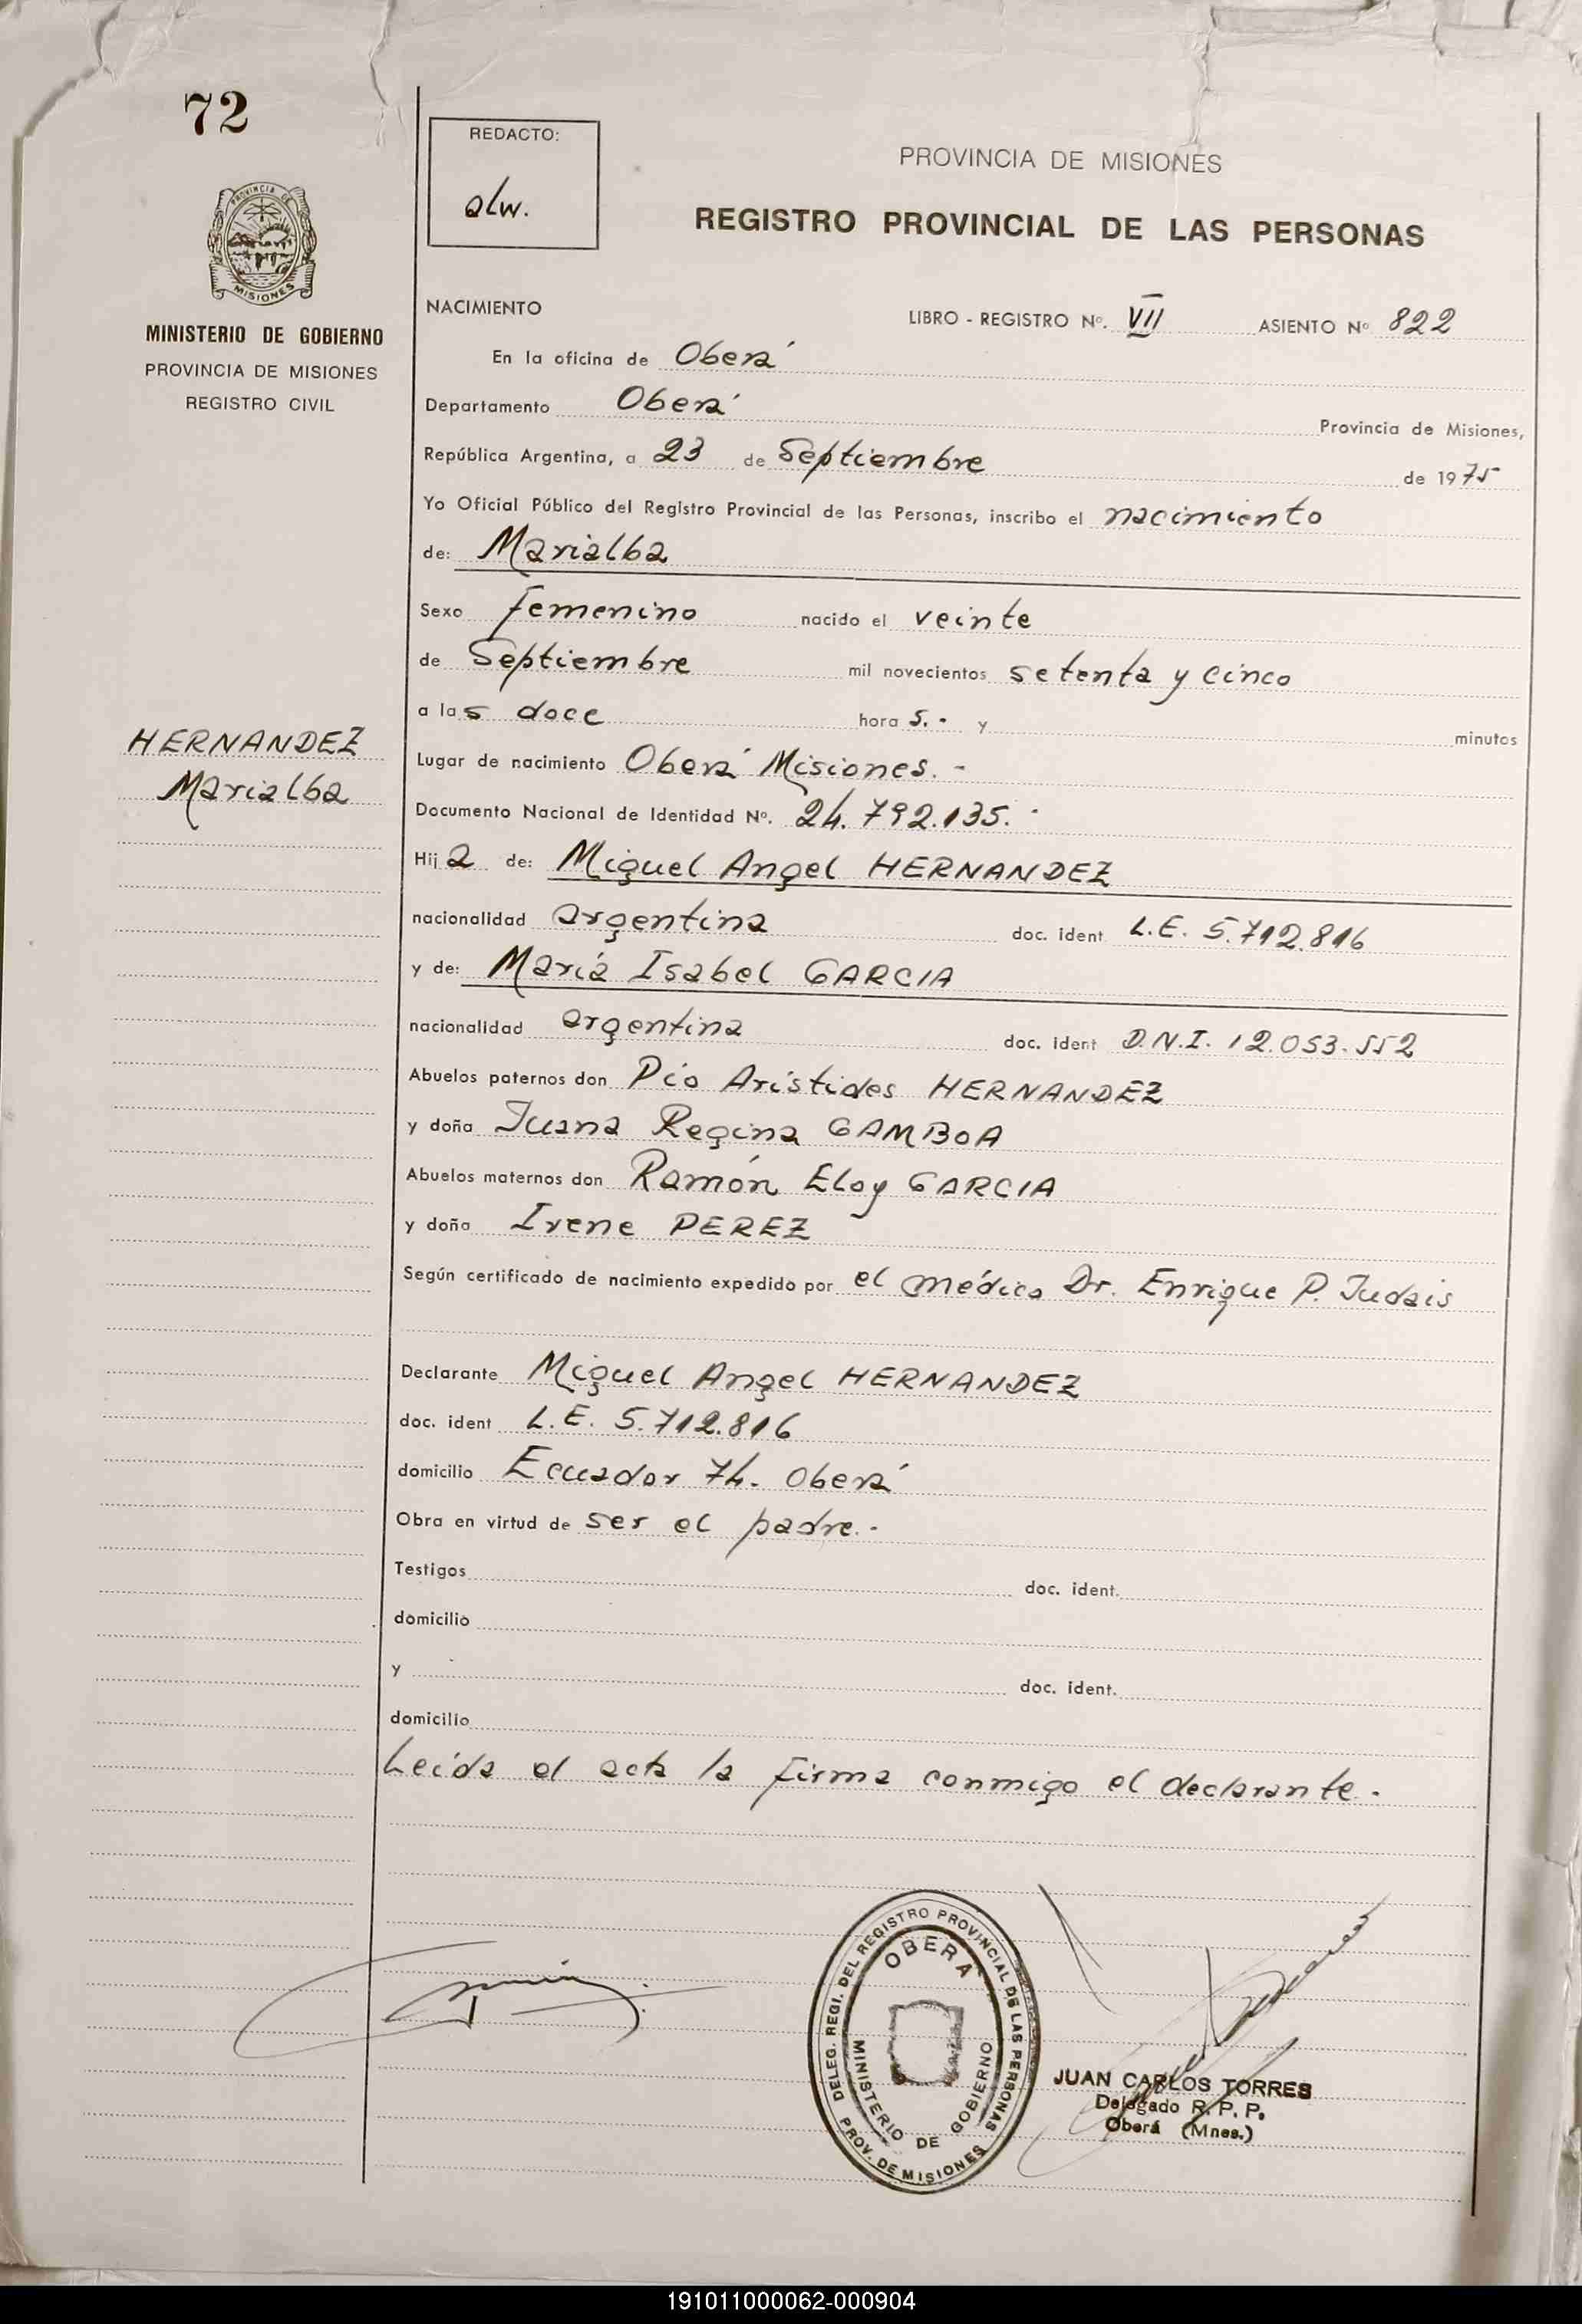 72
REDACTO:
alw.
PROVINCIA DE MISIONES
REGISTRO PROVINCIAL DE LAS PERSONAS
PROVINCIA DE
MISIONES
MINISTERIO DE GOBIERNO
PROVINCIA DE MISIONES
REGISTRO CIVIL
NACIMIENTO LIBRO - REGISTRO Nº. VII ASIENTO Nº 822
En la oficina de Oberá
Departamento Oberá Provincia de Misiones,
República Argentina, a 23 de Septiembre de 1975
Yo Oficial Público del Registro Provincial de las Personas, inscribo el nacimiento
de: Marialba
Sexo femenino nacido el veinte
de Septiembre mil novecientos setenta y cinco
a las doce hora s.- y minutos
HERNANDEZ
Marialba
Lugar de nacimiento Oberá Misiones.-
Documento Nacional de Identidad Nº. 24.792.135.-
Hija de: Miguel Angel HERNANDEZ
nacionalidad argentina doc. ident L.E. 5.712.816
y de: María Isabel GARCIA
nacionalidad argentina doc. ident D.N.I. 12.053.552
Abuelos paternos don Pío Arístides HERNANDEZ
y doña Juana Regina GAMBOA
Abuelos maternos don Ramón Eloy GARCIA
y doña Irene PEREZ
Según certificado de nacimiento expedido por el médico Dr. Enrique P. Judais
Declarante Miguel Angel HERNANDEZ
doc. ident L.E. 5.712.816
domicilio Ecuador 74. Oberá
Obra en virtud de ser el padre.-
Testigos doc. ident.
domicilio
y doc. ident.
domicilio
Leída el acta la firma conmigo el declarante.-
DELEG. REGI. DEL REGISTRO PROVINCIAL DE LAS PERSONAS
OBERA
MINISTERIO DE GOBIERNO
PROV. DE MISIONES
JUAN CARLOS TORRES
Delegado R. P. P.
Oberá (Mnes.)
191011000062-000904